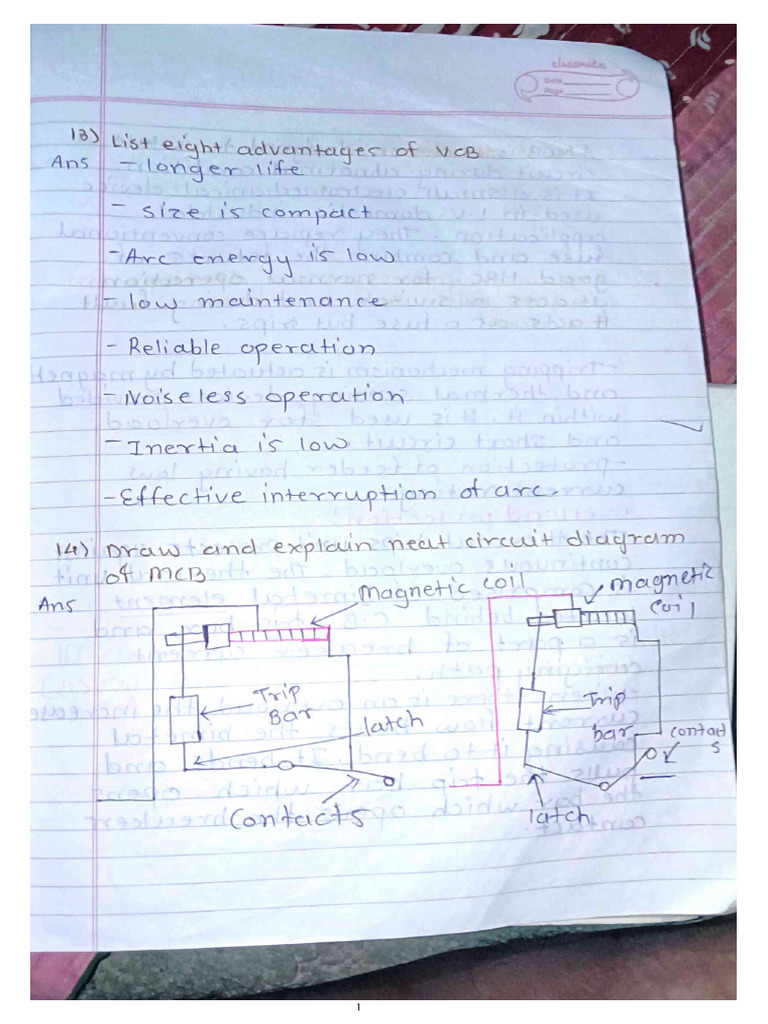 classmate
Date
Page
13) List eight advantages of VCB
Ans - longer life
- size is compact
- Arc energy is low
- low maintenance
- Reliable operation
- Noiseless operation
- Inertia is low
- Effective interruption of arc.
14) Draw and explain neat circuit diagram
of MCB
Ans
magnetic coil
Trip
Bar
latch
Contacts
magnetic
coil
Trip
bar
contact
s
latch
1